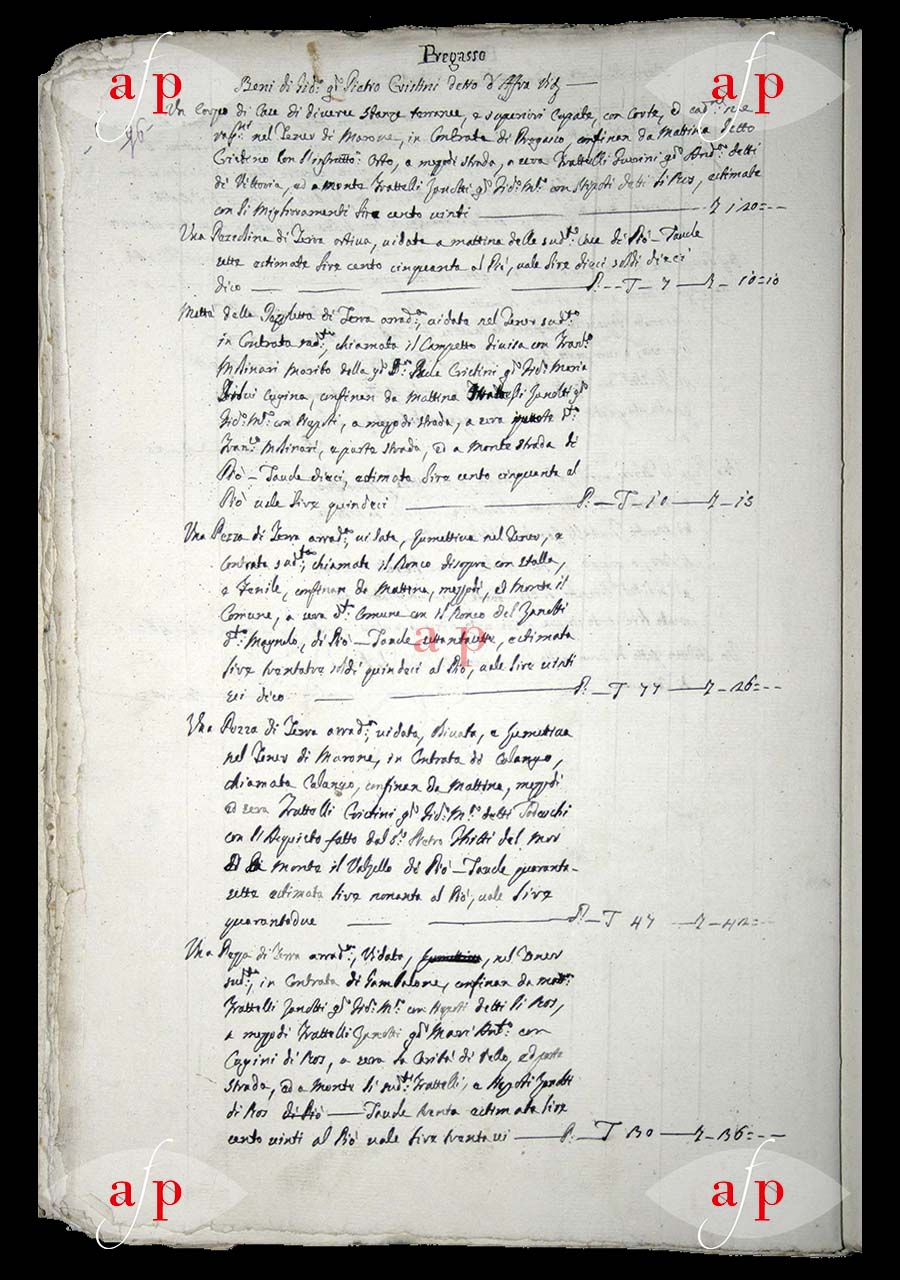 Pregasso
Beni di Gio: q: Pietro Cristini detto d'Affra
Un Corpo di Case di diverse stanze terranee, e superiori Cupate, con Corte, ed
nel Tener di Marone, in Contrata di Pregasso, confinan da Mattina detto
Cristino con Orto, a mezzodi strada, a sera Frattelli Guerini q: And: detti
di Vittoria, ed a monte Frattelli Zanotti q: Gio: M: con Nepoti detti li Ros, estimate
con li Miglioramenti lire cento vinti — — L 120=--
Una Pezzolina di Terra ortiva, vidata a mattina delle sud: Case di Piò — Taule
sette estimate lire cento cinquanta al Piò, vale lire dieci soldi dieci
dico — — P: — T — 7 — L — 10=10
Mettà della Pezzoletta di Terra arrad:, vidata nel Tener sud:
in Contrata sud:, chiamata il Campetto divisa con Fran:
Molinari marito della q: Cristini q: Gio: Maria
Cugina, confinan da Mattina Frattelli Zanotti q:
Gio: M: con Nepoti, a mezzodi strada, a sera
Fran: Molinari, e parte strada, ed a Monte strada di
Piò — Taule dieci, estimata lire cento cinquanta al
Piò vale lire quindeci — P: — T — 10 — L — 15
Una Pezza di Terra arrad:, vidata, Gumettiva nel Tener, e
Contrata sud:, chiamata il Ronco disopra con stalla,
e Fenile, confinan da Mattina, mezzodi, ed Monte il
Comune, a sera d: Comune con il Ronco del Zanotti
d: Magnolo, di Piò — Taule settantasette, estimata
lire trentatre soldi quindeci al Piò, vale lire vinti
sei dico — — P: — T 77 — L — 26=--
Una Pezza di Terra arrad:, vidata, olivata, e Gumettiva
nel Tener di Marone, in Contrata di Calango,
chiamata Calango, confinan da Mattina, mezzodi
ed sera Frattelli Cristini q: Gio: M: detti Todeschi
con li Aquisto fatto dal S: Pietro Ghitti del
monte il Valzello di Piò — Taule quaranta-
sette estimata lire nonanta al Piò, vale lire
quarantadue — — P: — T 47 — L — 42=--
Una Pezza di Terra arrad:, Vidata, nel Tener
sud:, in Contrata di Gambalone, confinan da mat:
Frattelli Zanotti q: Gio: M: con Nepoti detti li Ros,
a mezzodi Frattelli Zanotti q: Ant: con
Cugini di Ros, a sera la Carità di Vello, ed parte
strada, ed a Monte li sud: Frattelli, e Nepoti Zanotti
di Ros di Piò — Taule trenta estimata lire
cento vinti al Piò vale lire trentasei — P: — T 30 — L — 36=--
afp
afp
afp
afp
afp